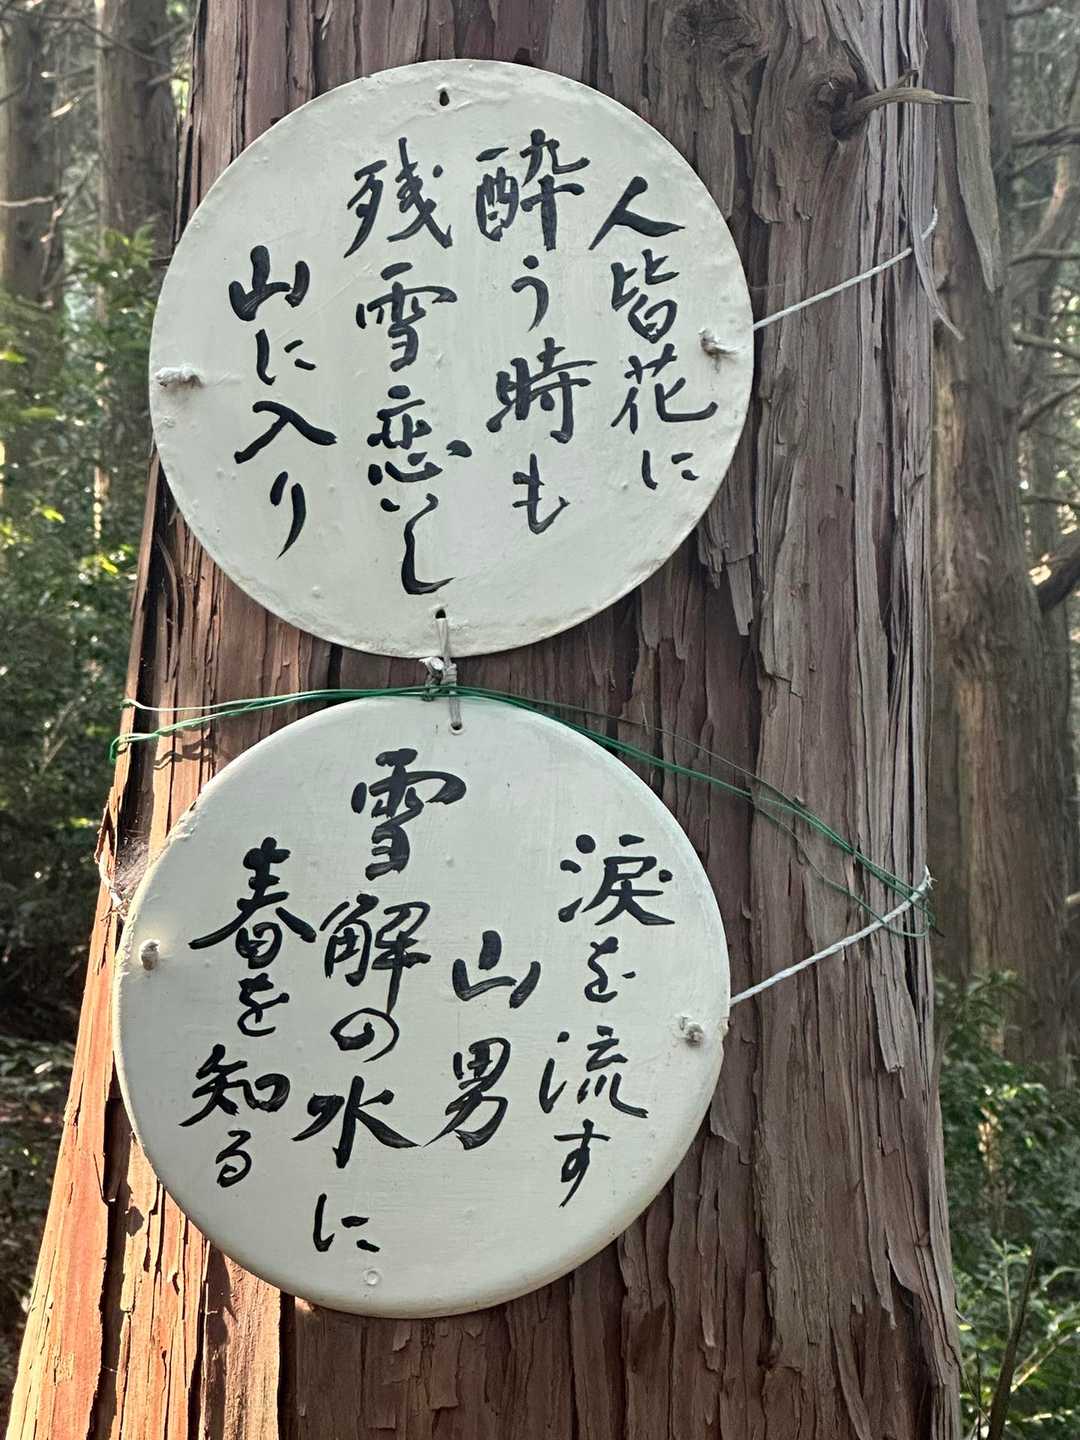 人皆花に
酔う時も
残雪恋いし
山に入り
涙を流す
山男
雪解の水に
春を知る